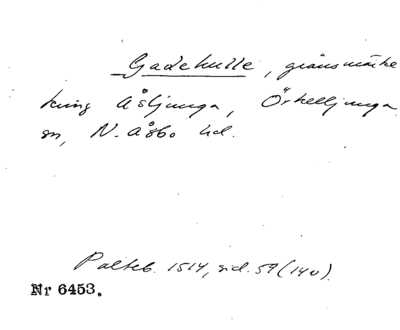 Gadehulle, gränsmärke
kring Åsljunga, Örkelljunga
sn, N. Åsbo hd.
Palteb. 1514, sid. 59 (140).
Nr 6453.